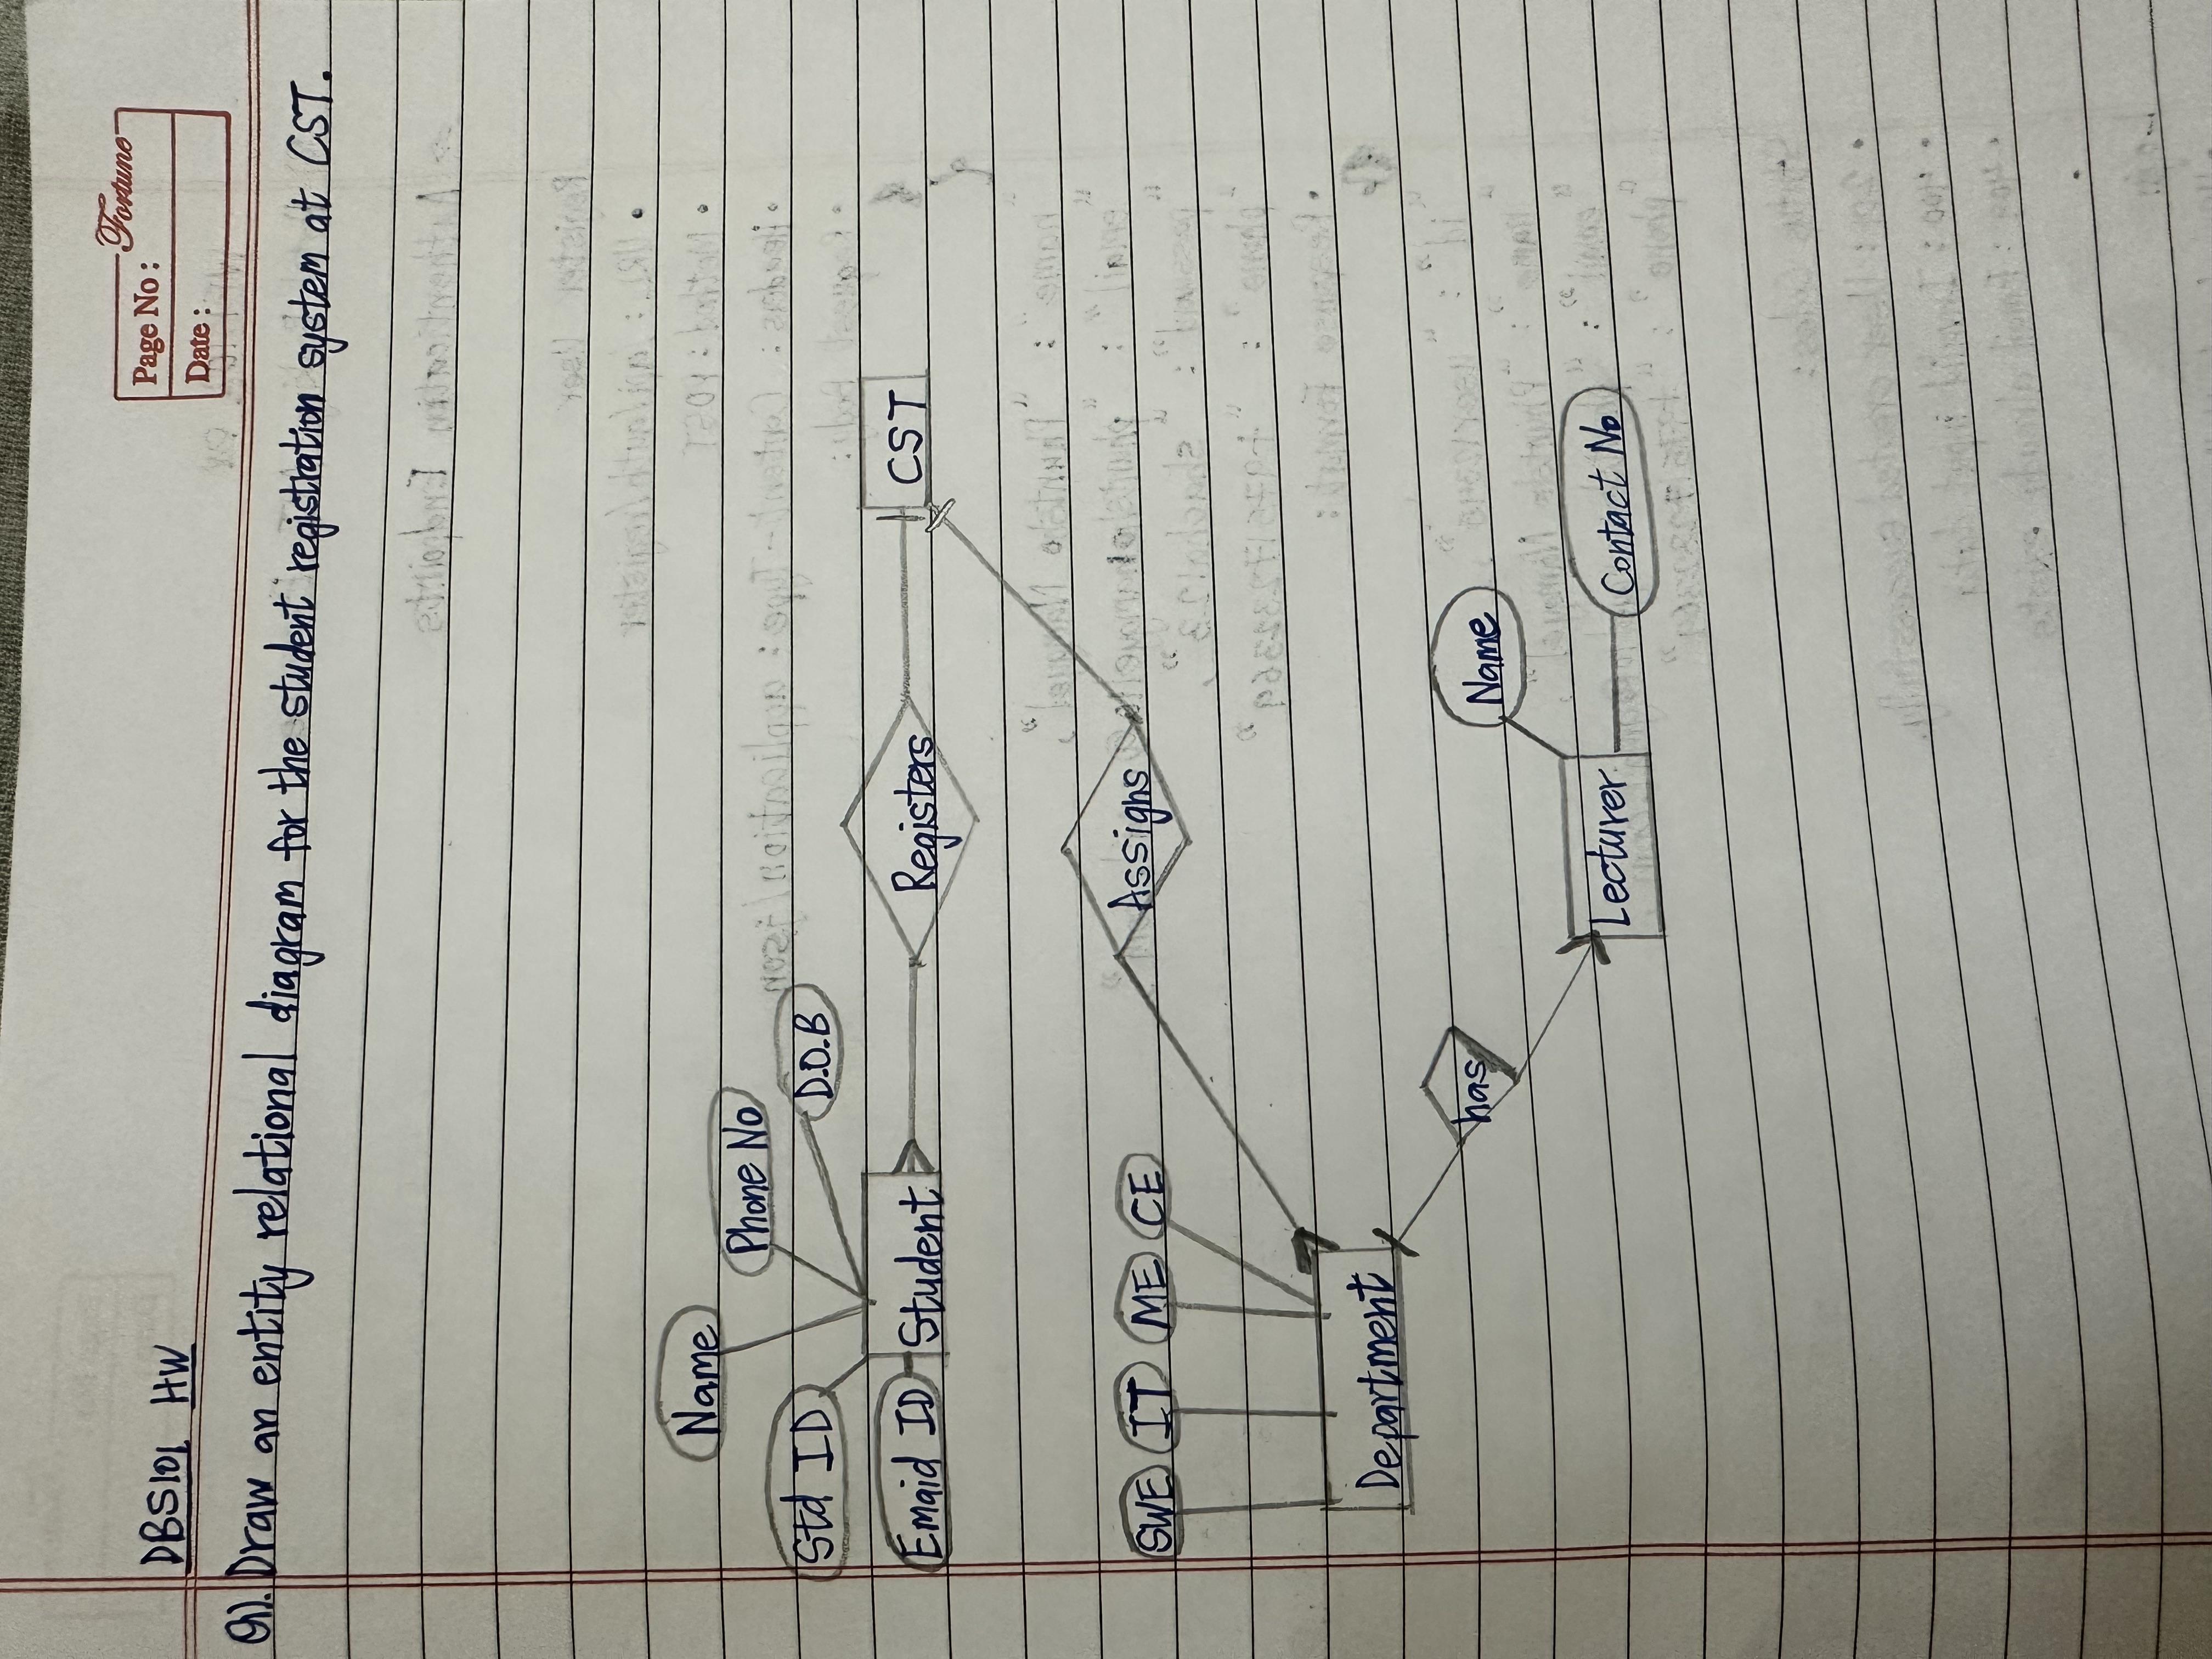 Fortune
Page No :
Date :
DBS101 HW
Q1). Draw an entity relational diagram for the student registration system at CST.
Name
Phone No
Std ID
D.O.B
Emaid ID
Student
Registers
CST
Assigns
SWE IT ME CE
Department
has
Name
Lecturer
Contact No